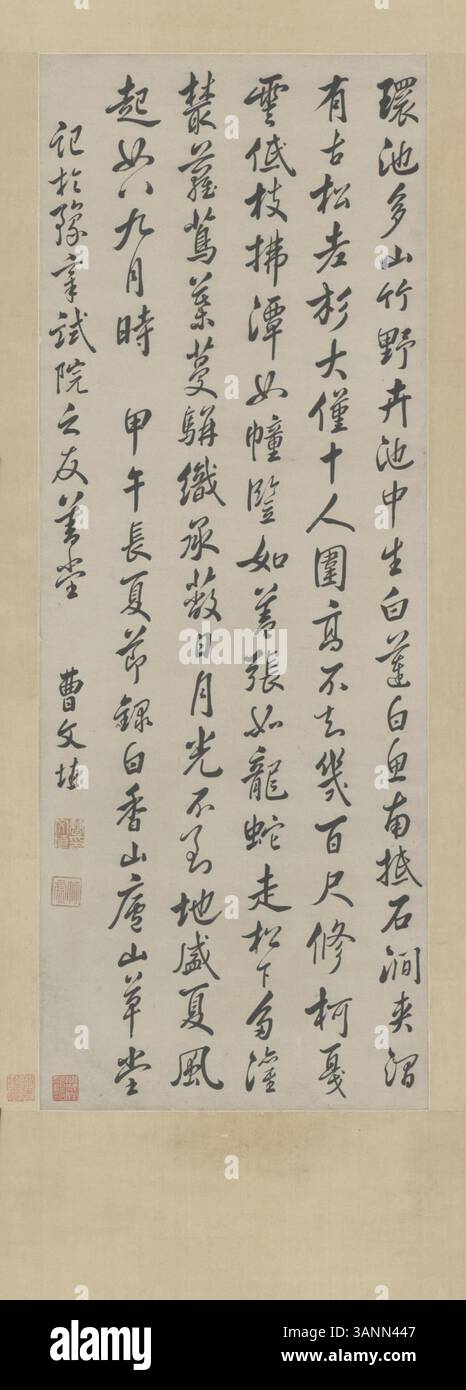 環池多山竹野卉池中生白蓮白魚南抵石澗夾澗
有古松老杉大僅十人圍高不知幾百尺修柯戛
雲低枝拂潭如幢豎如蓋張如龍蛇走松下多灌
叢蘿蔦葉蔓駢織承蔽日月光不到地盛夏風
起如八九月時 甲午長夏節錄白香山廬山草堂
記於豫章試院之友善堂 曹文埴
alamy
Image ID: 3ANN447
www.alamy.com